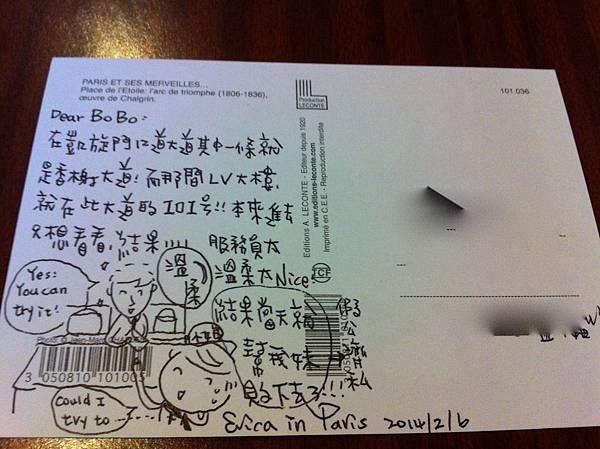 PARIS ET SES MERVEILLES...
Place de l'Etoile: l'arc de triomphe (1806-1836),
œuvre de Chalgrin.
Production
LECONTE
101.036
Dear BoBo:
在凱旋門12道大道其中一條就
是香榭大道! 而那間LV大樓,
就在此大道的101号!! 本來進去
只想看看, 結果!!!!
服務員太
溫柔太Nice!
結果當天就
敗下去了!!!
溫柔
Yes:
You can
try it!
Could I
try to
Editions A. LECONTE - Editeur depuis 1920
www.editions-leconte.com
Imprimé en C.E.E. - Reproduction interdite
3 050810 101005
Erica in Paris 2014/2/6